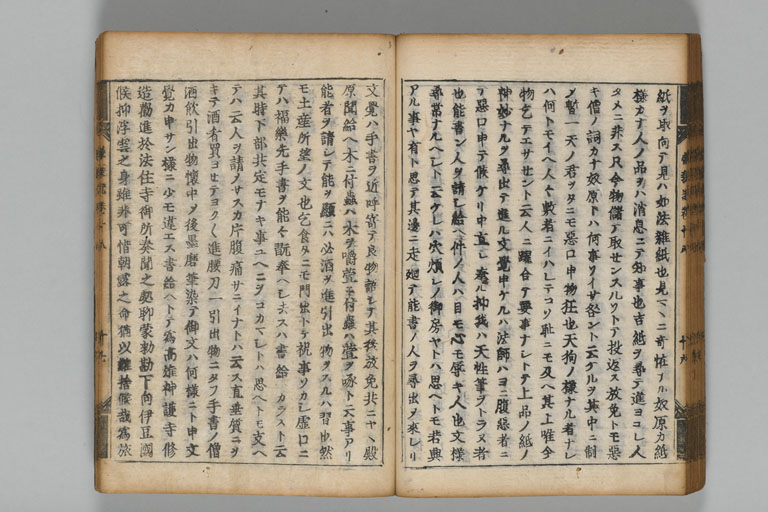 紙ヲ取向テ見ハ如法雑紙也見マヽニ奇怪ナル奴原カ紙
極カナ人ノ品ヲハ消息ニテ知事也吉紙ヲ尋テ進ヨコレ人
タメニ非ス只今物儲テ取センスルソトテ投返ス放免トモ惡
キ僧ノ詞カナ奴原トハ何事ソイサ咎ント云ケルヲ其中ニ制
ノ暫一天ノ君ヲタニモ惡口申物狂也天狗ノ様ナル者ナレ
ハ何トモイヘ人々敷者ニイハレテコソ耻ニモ及ヘ其上唯今
物乞テエサセント云人ニ躍合テ要事ナシトテ上品ノ紙ノ
神妙ナルヲ尋出テ進ル文覺申ケルハ法師ハヨニ腹惡者ニ
テ惡口申テ候ケリ中直シ抑我ハ天性筆ヲトラヌ者
也能書ン人ヲ請シ給ヘ件ノ人ハ目モ心モキ人也文様
尋常ナルヘシト云ケレハ穴煩シノ御房ヤトハ思ヘトモ若興
アル事ヤ有ト思テ其邊ニ走廻テ能書ノ人ヲ尋出テ來レリ
文覺ハ手書ヲ近呼寄テ良物語シテ其後放免共ニヤヽ殿
原聞給ヘ木ニ付蟲ハ木ヲ嚼萱ニ付蟲ハ萱ヲ啄ト云事アリ
能者ヲ請シテ能ヲ顯ニハ必酒ヲ進引出物ヲスルハ習也然
モ土産所望ノ文也乞食タニモ門出トテ祝事ソカシ虚口ニ
テハ福樂先手書ヲ能々翫奉ヘシ去スハ書給カラスト云
其時下部共定モナキ事ユヘニヲコカマシトハ思ヘトモ文ヘ
テハ云人ヲ請ノサスカ片腹痛サニイナトハ云ス直垂質ニヲ
キテ酒肴買ヨセテヨク々進腰刀一引出物ニタフ手書ノ僧
酒飲引出物懷中ノ後墨磨筆染テ御文ハ何様ニト申文
覺カ申サン様ニ少モ違エス書給ヘトテ爲高雄神護寺修
造勸進於法住寺御所奏聞之處聊蒙勅勘下向伊豆國
候抑浮雲之身雖非可惜朝露之命猶以難捨候哉爲旅